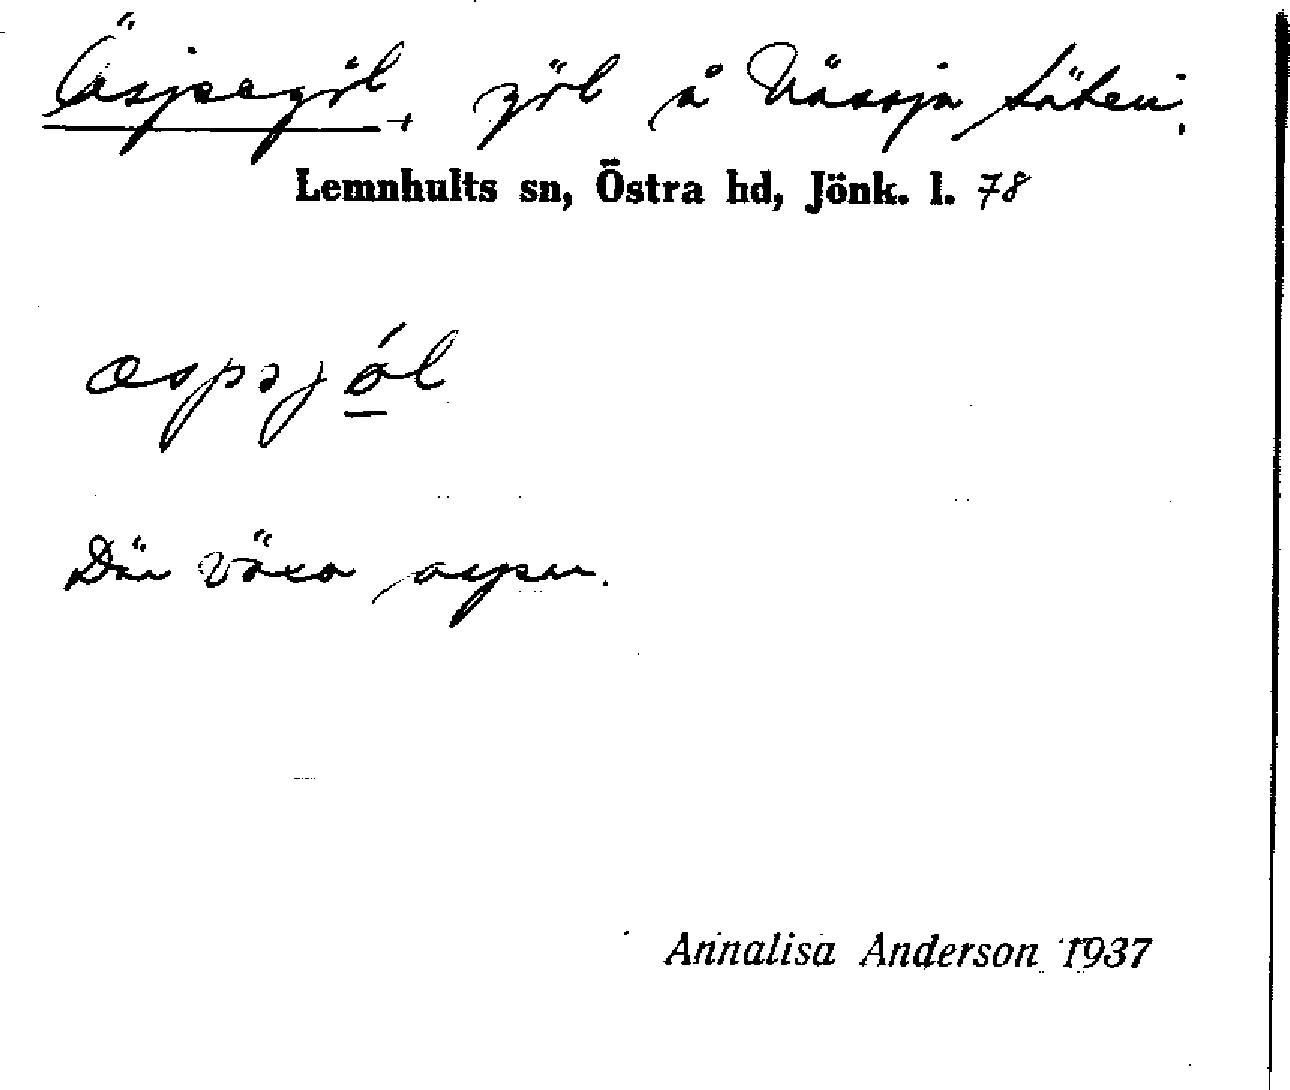 Äspegöl + göl å Nässja säteri.
Lemnhults sn, Östra hd, Jönk. l. 78
æspəjól
Där växa aspar.
Annalisa Anderson 1937